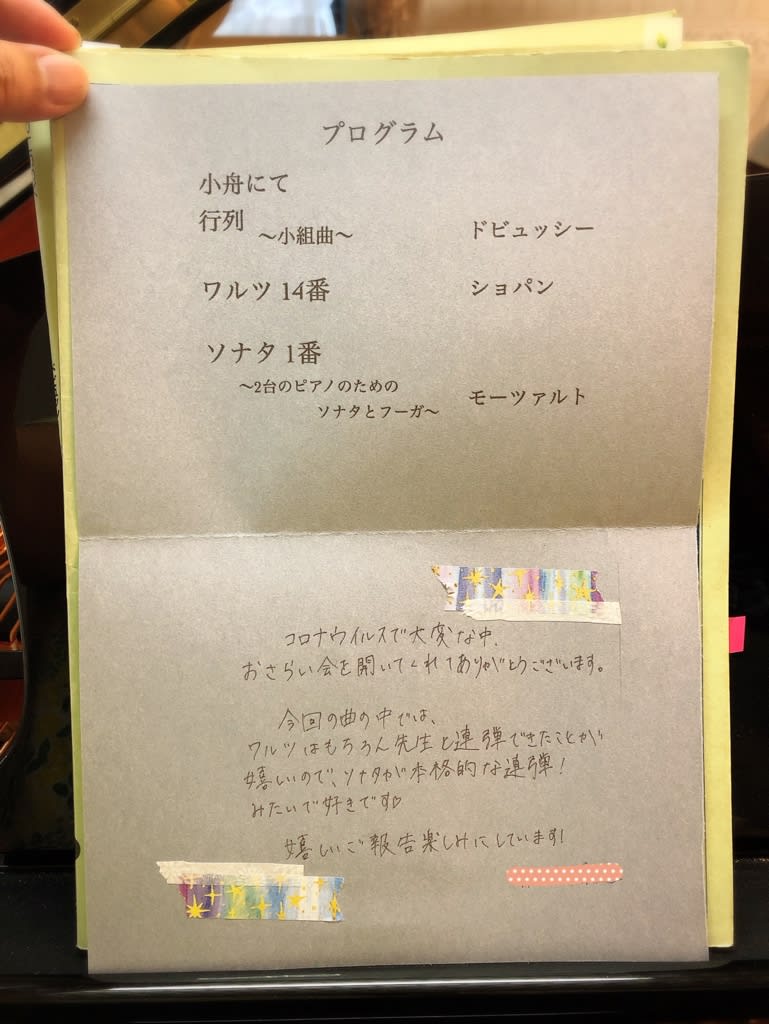 プログラム
小舟にて
行列 〜小組曲〜 ドビュッシー
ワルツ 14番 ショパン
ソナタ 1番
〜2台のピアノのための
ソナタとフーガ〜 モーツァルト
コロナウイルスで大変な中、
おさらい会を開いてくれてありがとうございます。
今回の曲の中では、
ワルツはもちろん先生と連弾できたことが
嬉しいので、ソナタが本格的な連弾!
みたいで好きです♡
嬉しいご報告楽しみにしています!